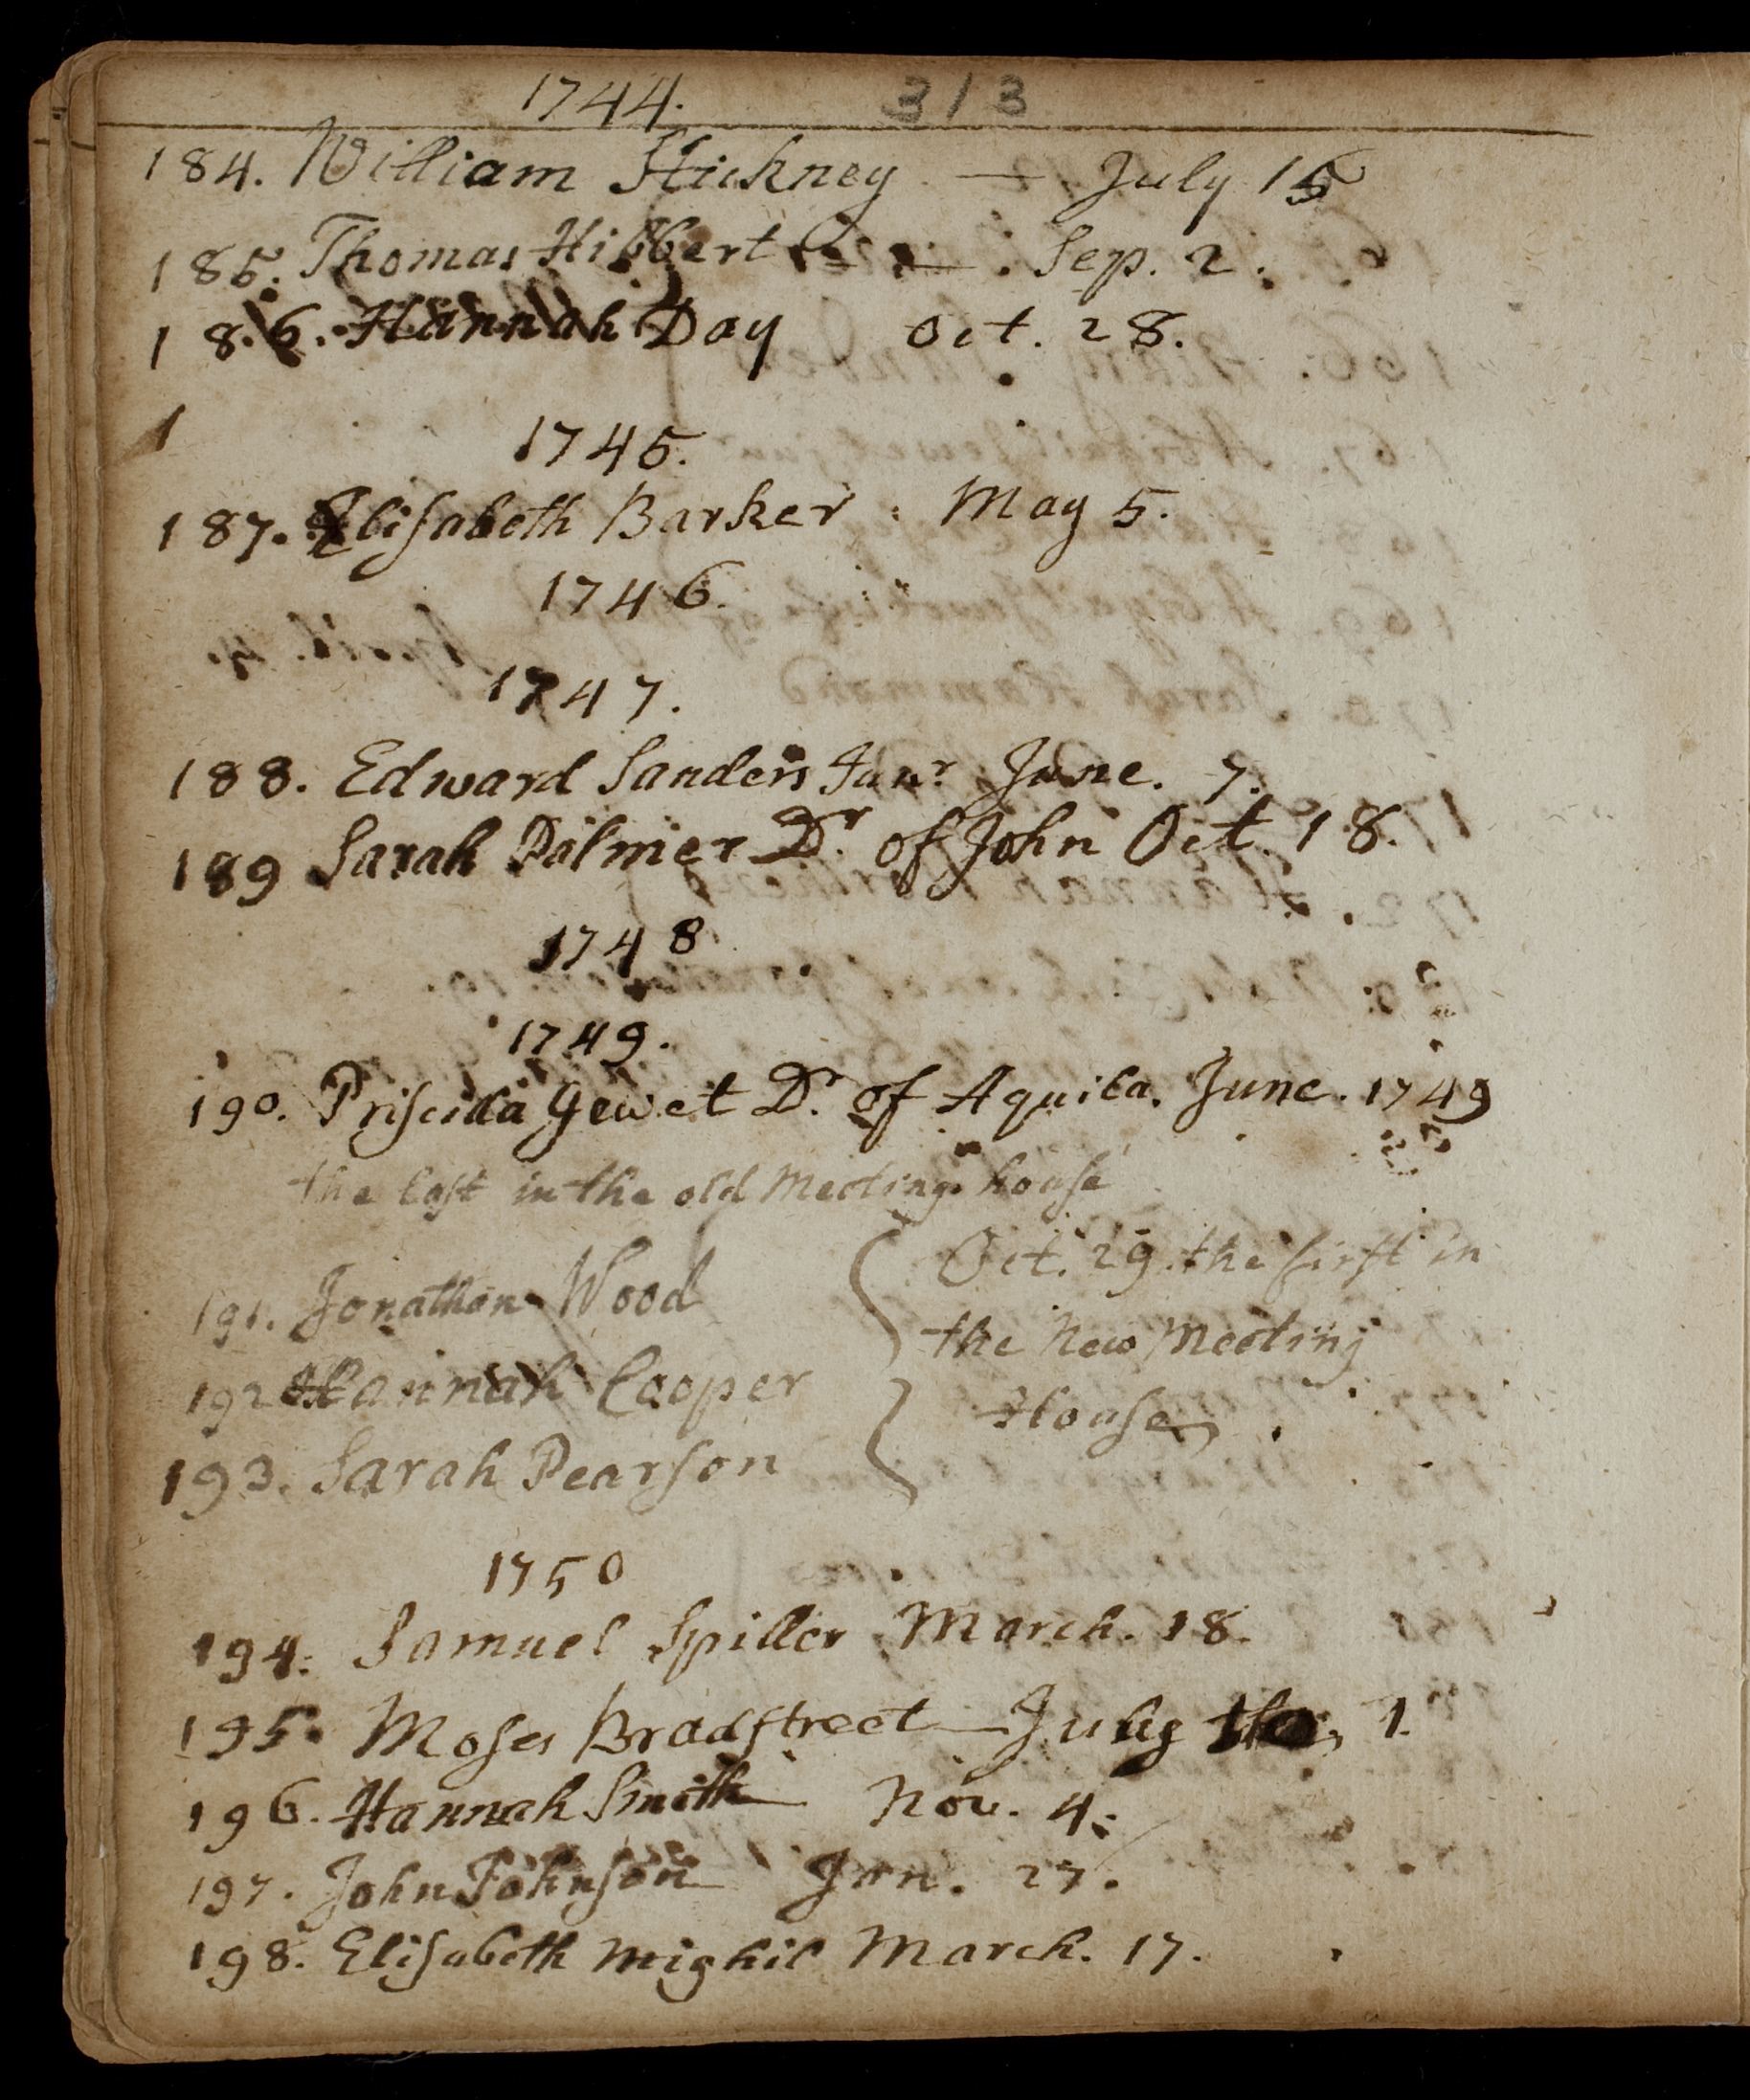 1744. 313
184. William Stickney — July 15
185. Thomas Hibbert — Sep. 2.
186. Hannah Day Oct. 28.
1
1745.
187. Elisabeth Barker. May 5.
1746.
1747.
188. Edward Sanders Junr June. 7.
189 Sarah Palmer Dr. of John Oct. 18.
1748
1749.
190. Priscilla Jewet Dr. of Aquila. June. 1749
the last in the old Meeting house
191. Jonathan Wood
192 Hannah Cooper
193. Sarah Pearson
Oct. 29. the first in
the New Meeting
House
1750
194. Samuel Spiller March. 18.
195. Moses Bradstreet — July 1.
196. Hannah Smith Nov. 4.
197. John Johnson Jan. 27.
198. Elisabeth Mighil March. 17.